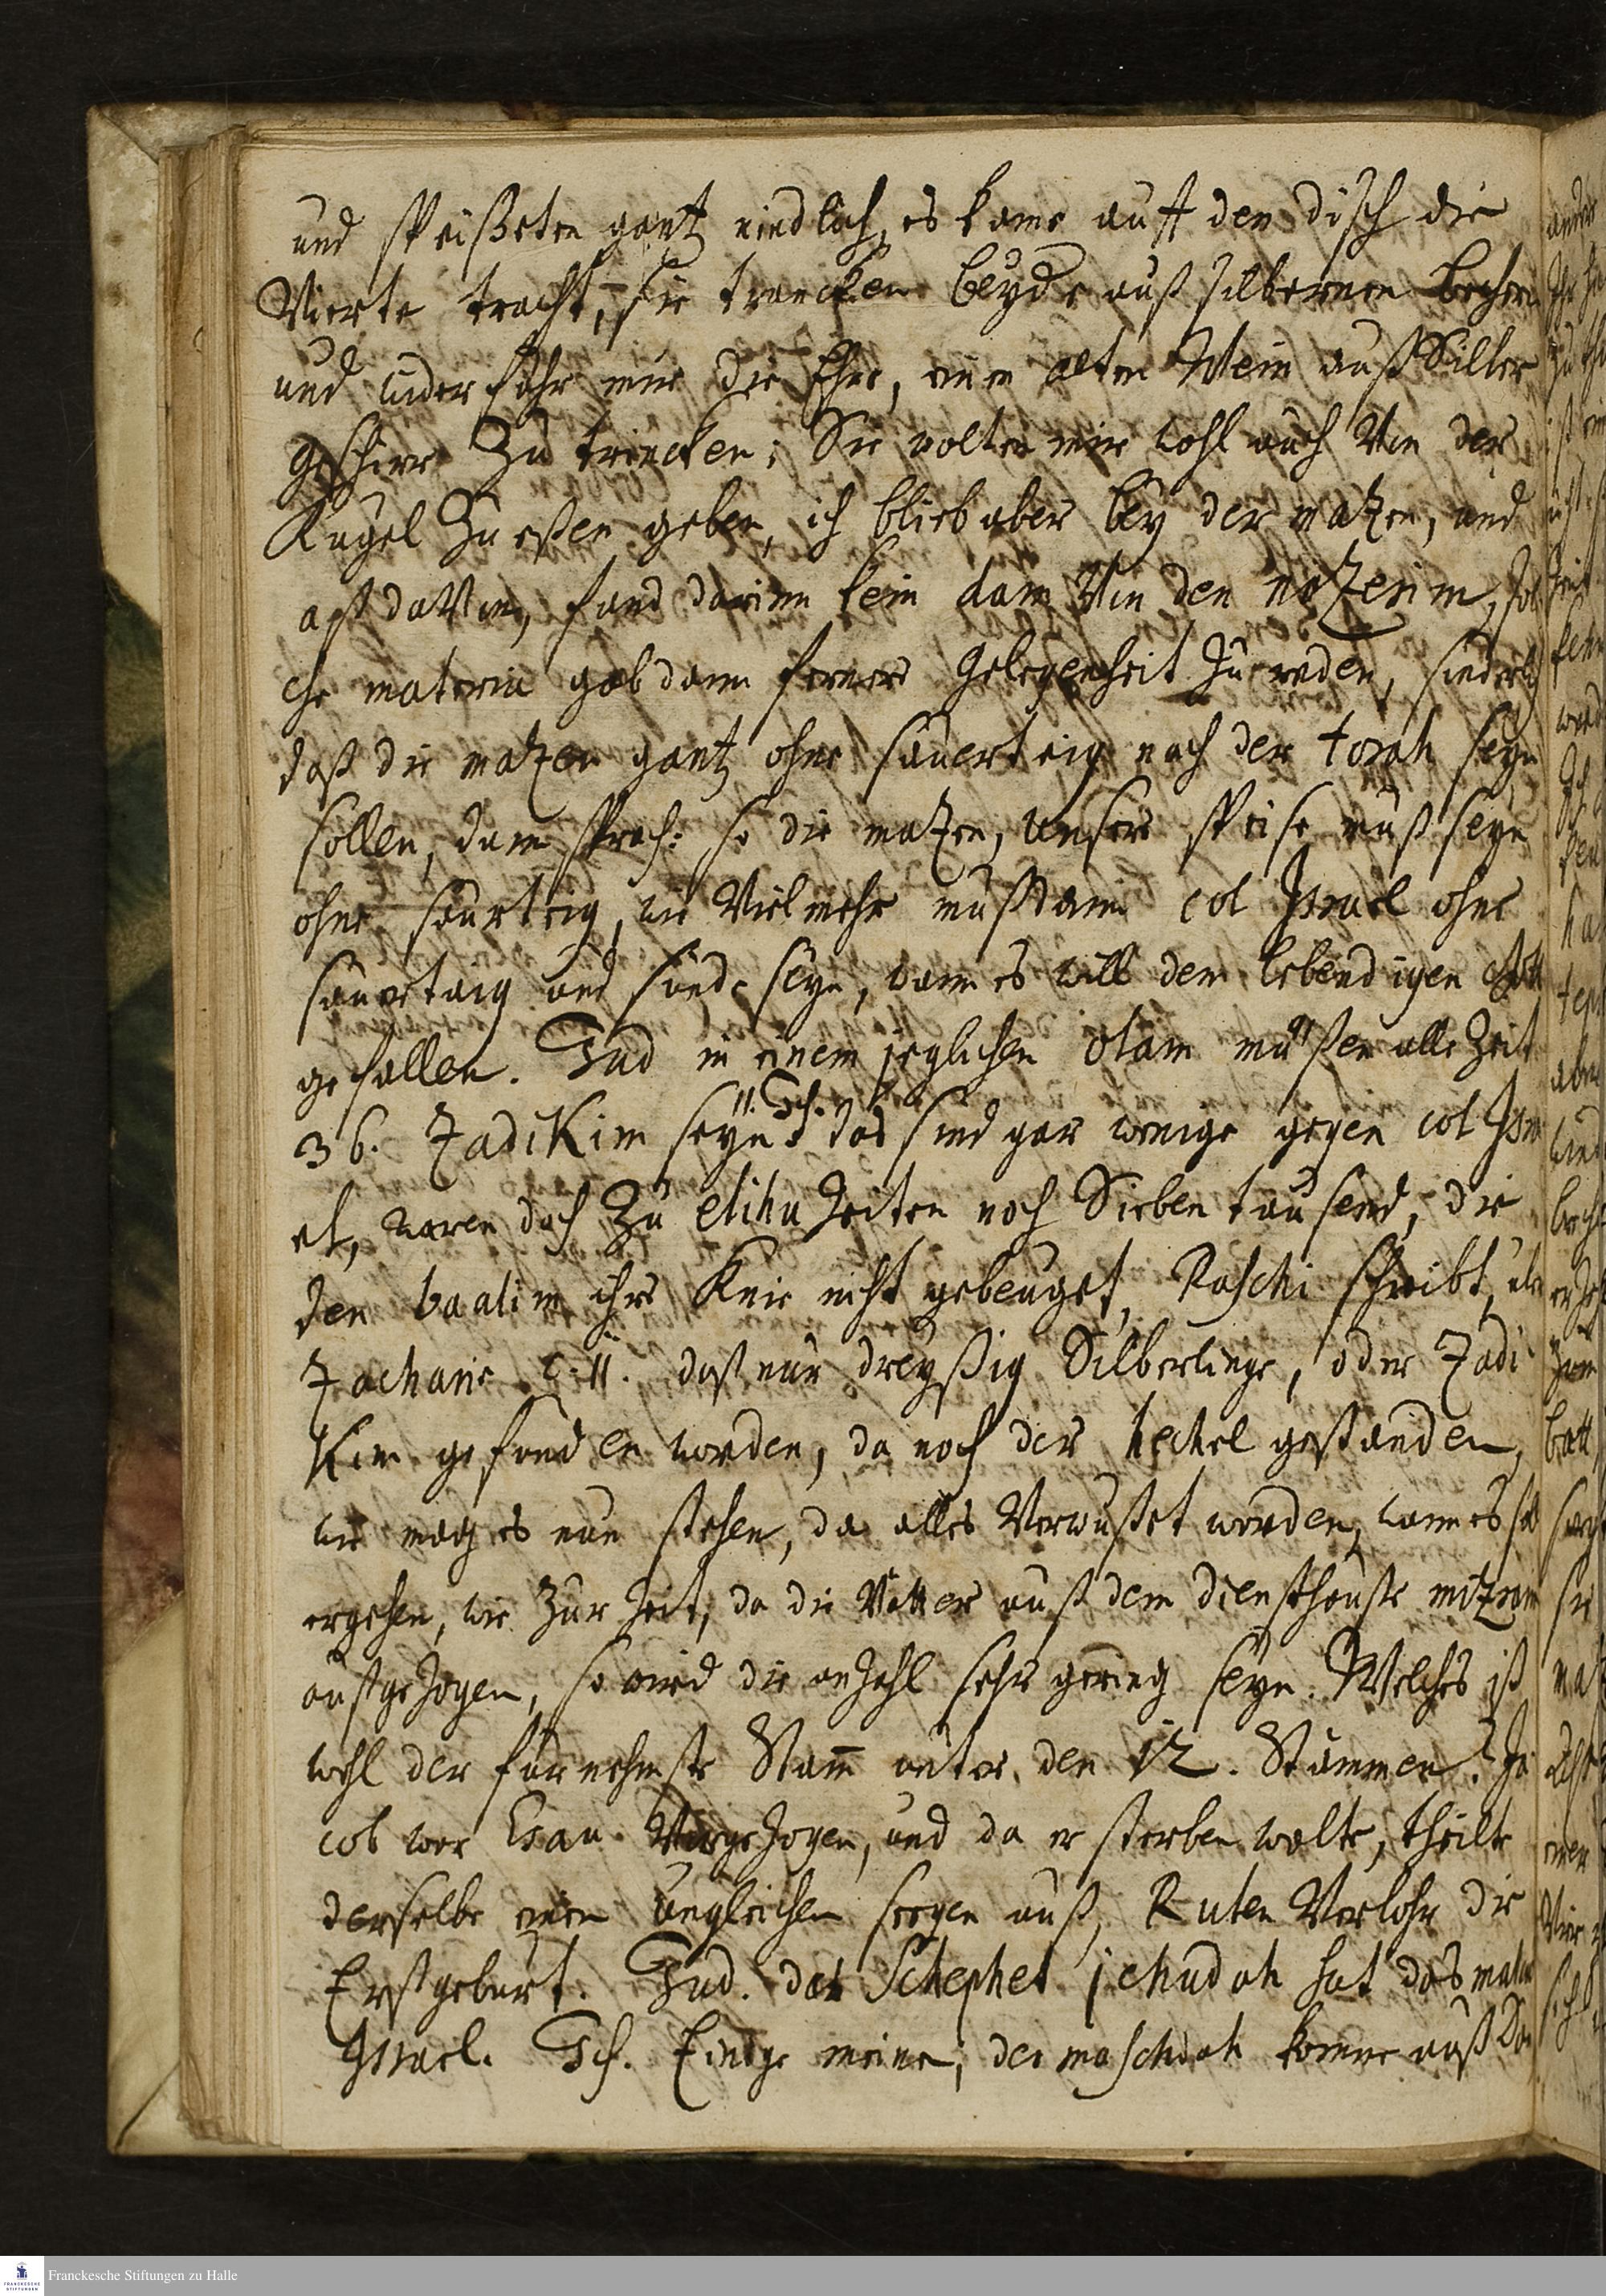 und speißeten gantz niedlich, es kame auff den disch die
Vierte tracht, sie trancken beyde auß silbernen bechern
und widerfuhr mir die Ehre, einen alten Wein auß Silber
geschirr zu trincken; Sie wolten mir wohl auch Von der
Kugel zu eßen geben, ich blieb aber bey der mazen, und
aß daVon, fand darinn kein dam Von den nozerim, sol
che materia gab dann ferners Gelegenheit zu reden, sinderlich
daß die mazen gantz ohne sauerteig nach der torah seyn
sollen, dann sprach: so die mazen, unsere speise muß seyn
ohne saurteig, wie Vielmehr muß dann col Israel ohne
sauerteig und sünde seyn, wann es will dem lebendigen Gott
gefallen. Jud in einem jeglichen olam müßen alle Zeit
36. Zadikim seyn. Ich. das sind gar wenige gegen col Isra
el, waren doch zu elihu Zeiten noch Sieben tausend, die
den baalim ihre Knie nicht gebeuget, Raschi schreibt, übr
Zacharie c. 11. daß nur dreyßig Silberlinge, oder Zadi
kim gefunden worden, da noch der hechel gestanden,
wie mag es nun stehen, da alles Verwüstet worden, wann es sol
ergehen, wie zur Zeit, da die Vätter auß dem diensthauße mizraim
außgezogen, so wird die anzahl sehr gering seyn. Welches ist
wohl der fürnehmste Stam̄ unter den 12. Stämmen? Ja
cob war Esau Vorgezogen, und da er sterben wolte, theilte
derselbe einen ungleichen seegen auß, Ruben Verlohr die
Erstgeburt. Jud. der Schephet jehudah hat das
Israel. Ich. Einige meinen, der maschiah komme auß Dan
Franckesche Stiftungen zu Halle